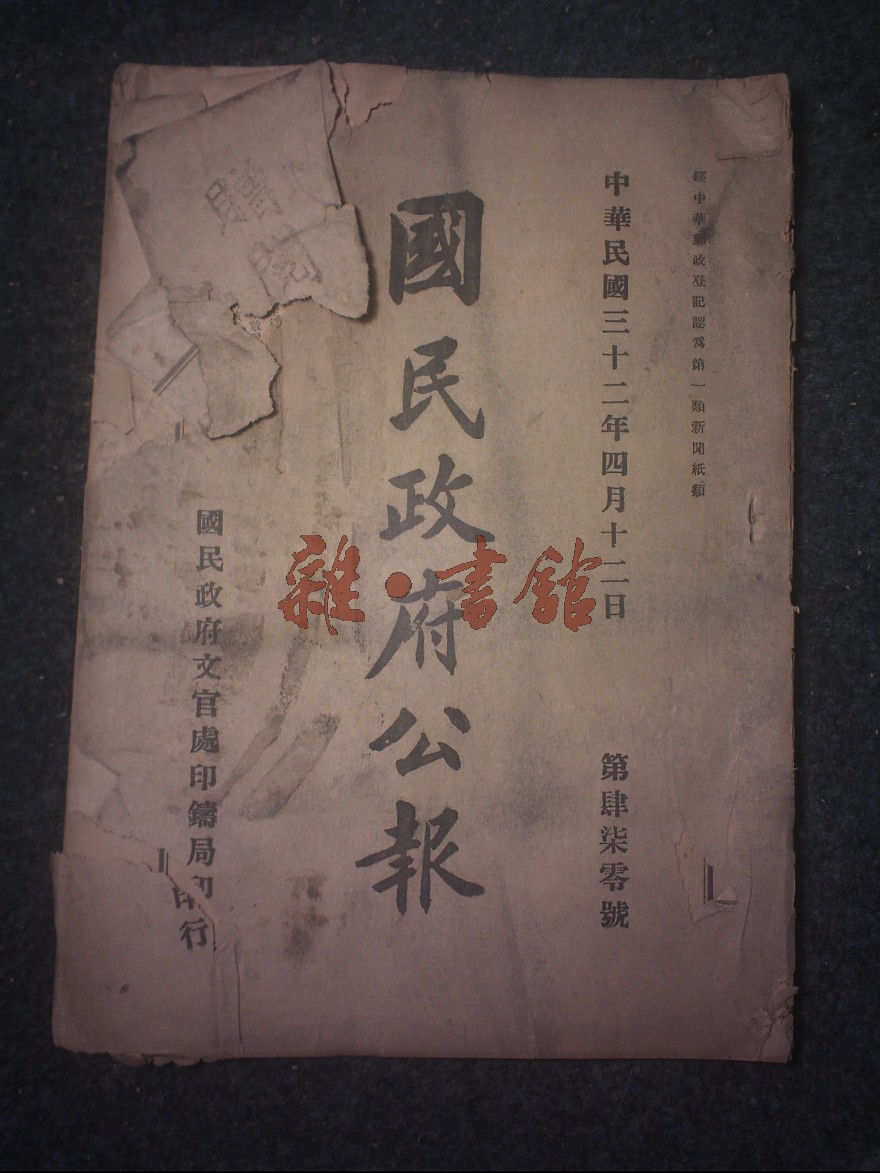 經中華郵政登記認爲第一類新聞紙類
中華民國三十二年四月十二日
第肆柒零號
國民政府公報
國民政府文官處印鑄局印行
雜·書館